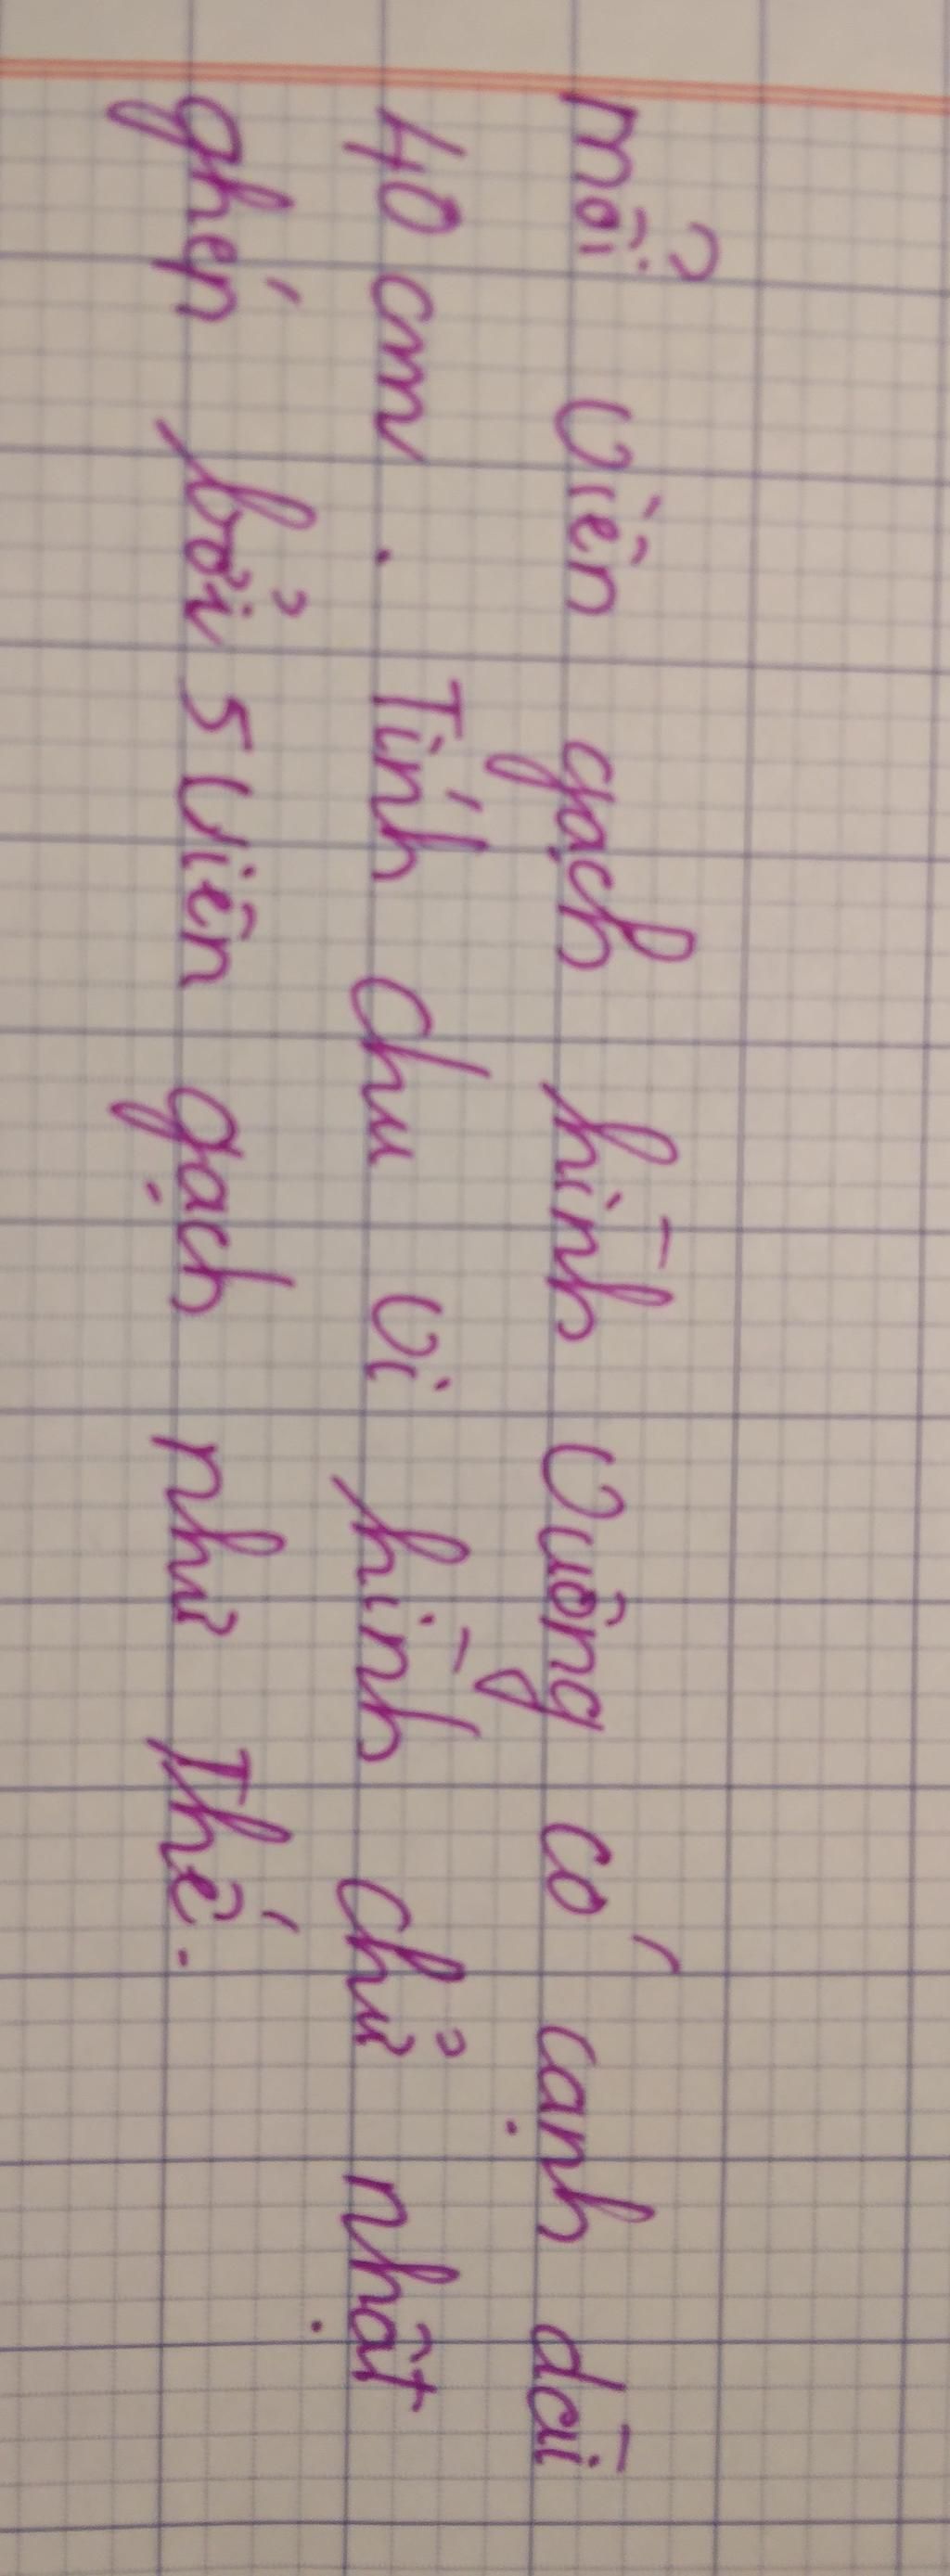 mổi viên gạch hình vuông có cạnh dài
40 cm. Tính chu vi hình chử nhật
ghép bởi 5 viên gạch như thế.